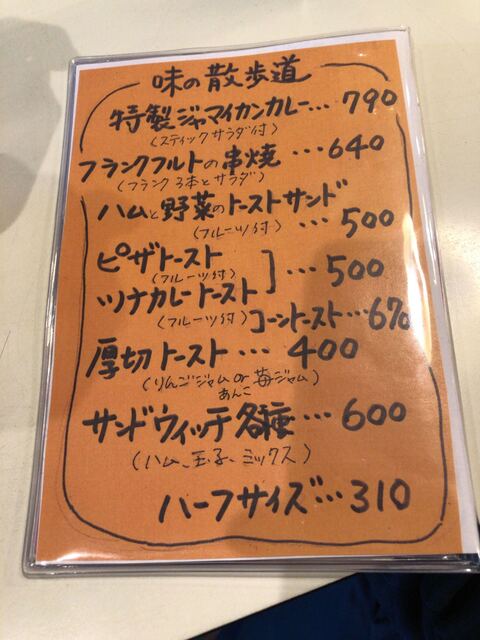 味の散歩道
特製ジャマイカンカレー…790
(スティックサラダ付)
フランクフルトの串焼…640
(フランク3本とサラダ)
ハムと野菜のトーストサンド
(フルーツ付)…500
ピザトースト
(フルーツ付)]…500
ツナカレートースト
(フルーツ付)コーントースト…670
厚切トースト…400
(りんごジャム or 苺ジャム)
あんこ
サンドウィッチ各種…600
(ハム、玉子、ミックス)
ハーフサイズ…310